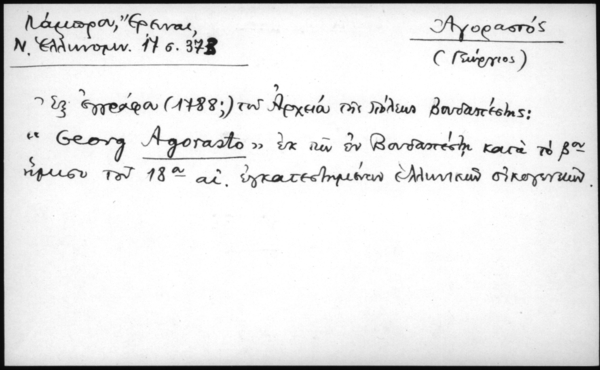 Λάμπρου, "Ερευναι,
Ν. Ἑλληνομν. 17 σ. 373
Ἀγοραστός
(Γεώργιος)
Ἐξ ἐγγράφου (1788;) τοῦ Ἀρχείου τῆς πόλεως Βουδαπέστης:
"Georg Agorasto" ἐκ τῶν ἐν Βουδαπέστῃ κατὰ τὸ βον
ἥμισυ τοῦ 18ου αἰ. ἐγκατεστημένων ἑλληνικῶν οἰκογενειῶν.